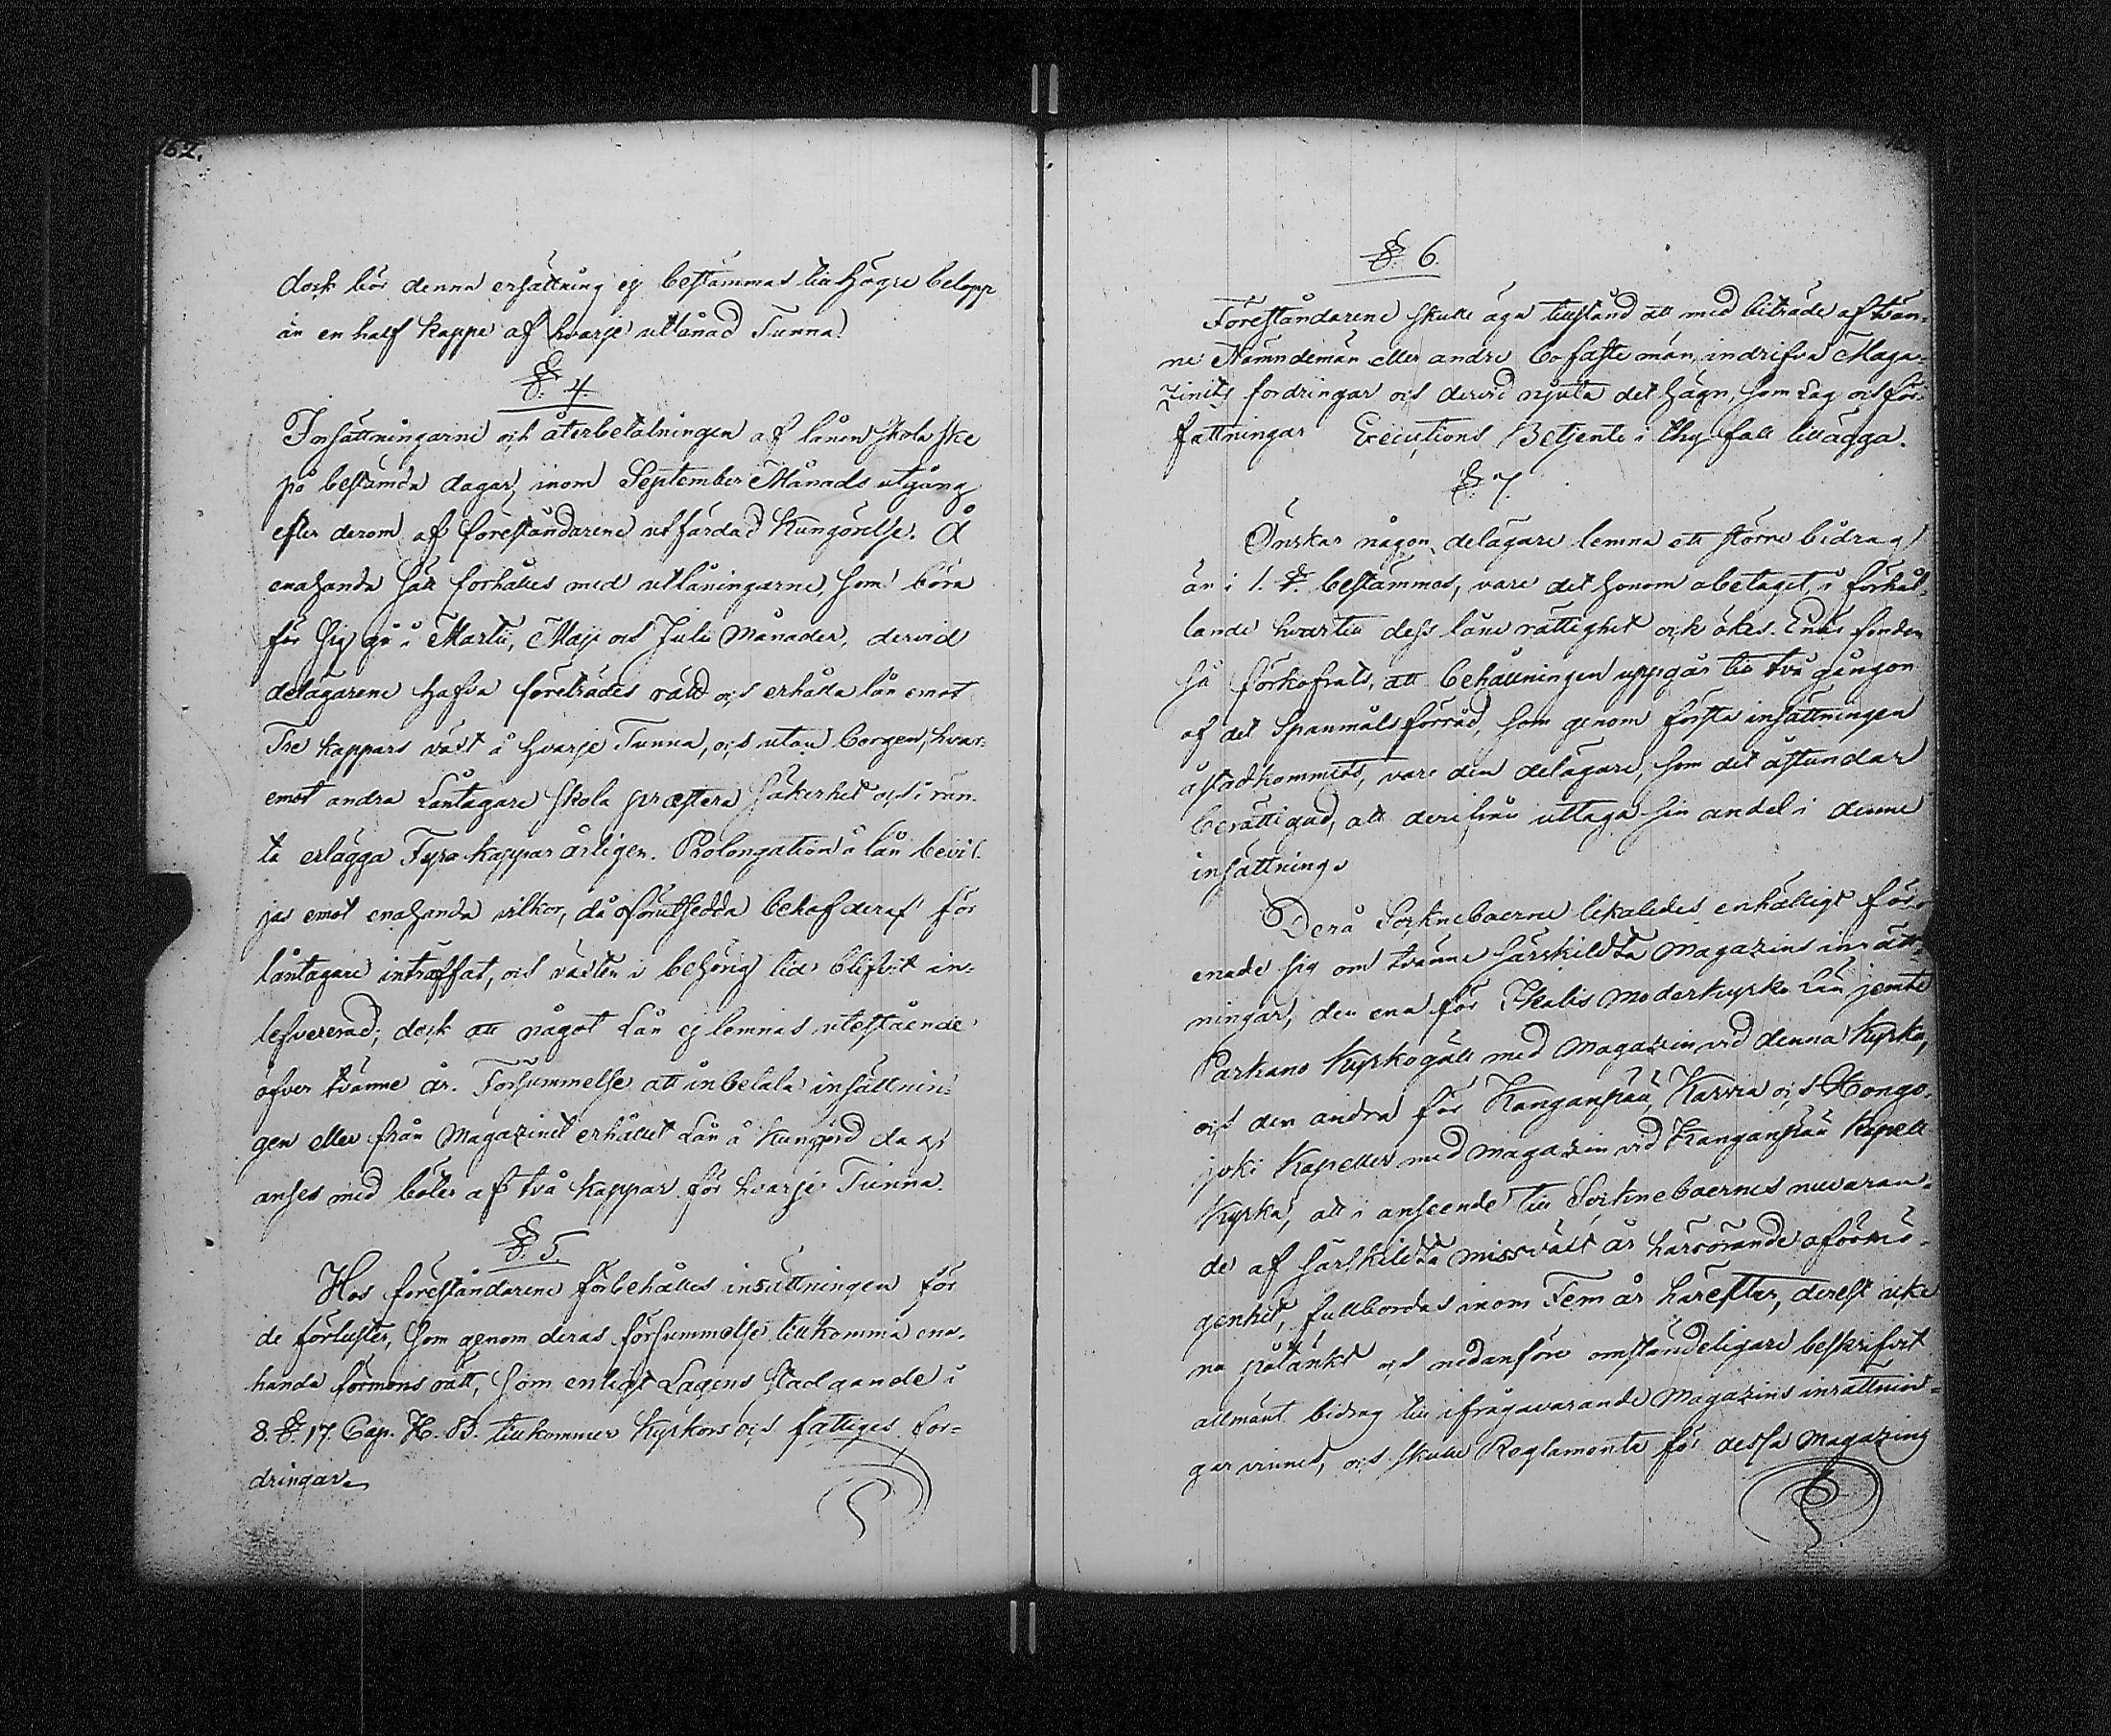 162.
dock bör denna ersättning ej bestämmas till högre belopp
än en half kappe af hvarje utlånad Tunna.
§. 4.
Insättningarne och återbetalningen af lånen skola ske
på bestämda dagar, inom September Månads utgång
efter derom af föreståndarene utfärdad Kungörelse. Å
enahanda sätt förhålles med utlåningarne, som böra
för sig gå i Martii, Maji och Julii Månader, dervid
delägarene hafva företrädes rätt och erhålla lån emot
Tre kappars växt å hvarje Tunna, och utan borgen, hvar-
emot andra Låntagare skola præstera säkerhet och i rän-
ta erlägga Fyra kappar årligen. Prolongation å lån bevil-
jas emot enahanda vilkor, då förutsedda behof deraf för
låntagare inträffat, och växten i behörig tid blifvit in-
lefvererad; dock att något Lån ej lemnas utestående
öfver tvänne år. Försummelse att inbetala insättnin-
gen eller från Magazinet erhållet Lån å kungjord dag
anses med böter af två kappar för hvarje Tunna.
§. 5.
Hos föreståndarene förbehålles insättningen för
de förluster, som genom deras försummelse tillkomma ena-
handa förmons rätt, som enligt Lagens stadgande i
8. §. 17. Cap. H. B. tillkommer Kyrkors och fattiges for-
dringar.
163
§. 6.
Föreståndarene skulle äga tillstånd att med biträde af tvän-
ne Nämndemän eller andre bofaste män, indrifva Maga-
zinets fordringar och dervid njuta det hägn, som Lag och för-
fattningar Executions Betjente i thy fall tillägga.
§. 7.
Önskar någon delägare lemna ett större bidrag
än i 1. §. bestämmes, vare det honom obetaget, i förhål-
lande hvartill dess låne rättighet ock ökes. Enär fonden
så förkofrats, att behållningen uppgår till två gångor
af det Spanmåls förråd, som genom första insättningen
åstadkommits, vare den delägare, som det åstundar
berättigad, att derifrån uttaga sin andel i denne
insättning.
Derå Socknebοerne likaledes enhälligt för-
enade sig om tvänne särskildta Magazins inrätt-
ningar, den ena för Ikalis moderkyrko Län jemte
Parkano Kyrkogäll med Magazin vid denna Kyrka,
och den andra för Kangaspää, Karvia och Hongo-
joki Kapeller med magazin vid Kangaspää Kapell
Kyrka, att i anseende till Socknebοernes nuvaran-
de af särskildta missväxt år härrörande oförmö-
genhet, fullbordas inom Fem år härefter, derest icke
nu påtänkt och nedanföre omständeligare beskrifvit
allmänt bidrag till ifrågavarande Magazins inrättnin-
gar vinnes, och skulle Reglamente för dessa Magazins